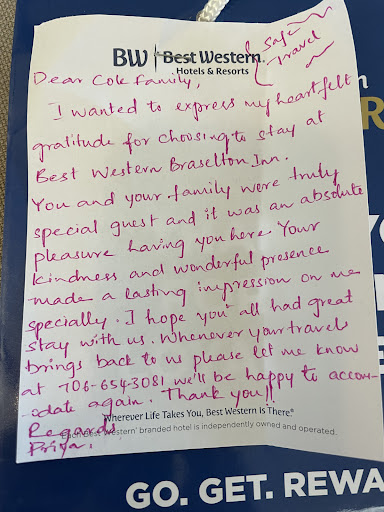 BW Best Western.
Hotels & Resorts
Safe
Travel
Dear Cole Family,
I wanted to express my heartfelt
gratitude for choosing to stay at
Best Western Braselton Inn.
You and your family were truly
special guest and it was an absolute
pleasure having you here Your
kindness and wonderful presence
made a lasting impression on me
specially. I hope you all had great
stay with us. Whenever your travels
brings back to us please let me know
at 706-654-3081 we'll be happy to accom-
odate again. Thank you!!
Wherever Life Takes You, Best Western Is There.®
Regards
Each Best Western® branded hotel is independently owned and operated.
Priya.
GO. GET. REWA